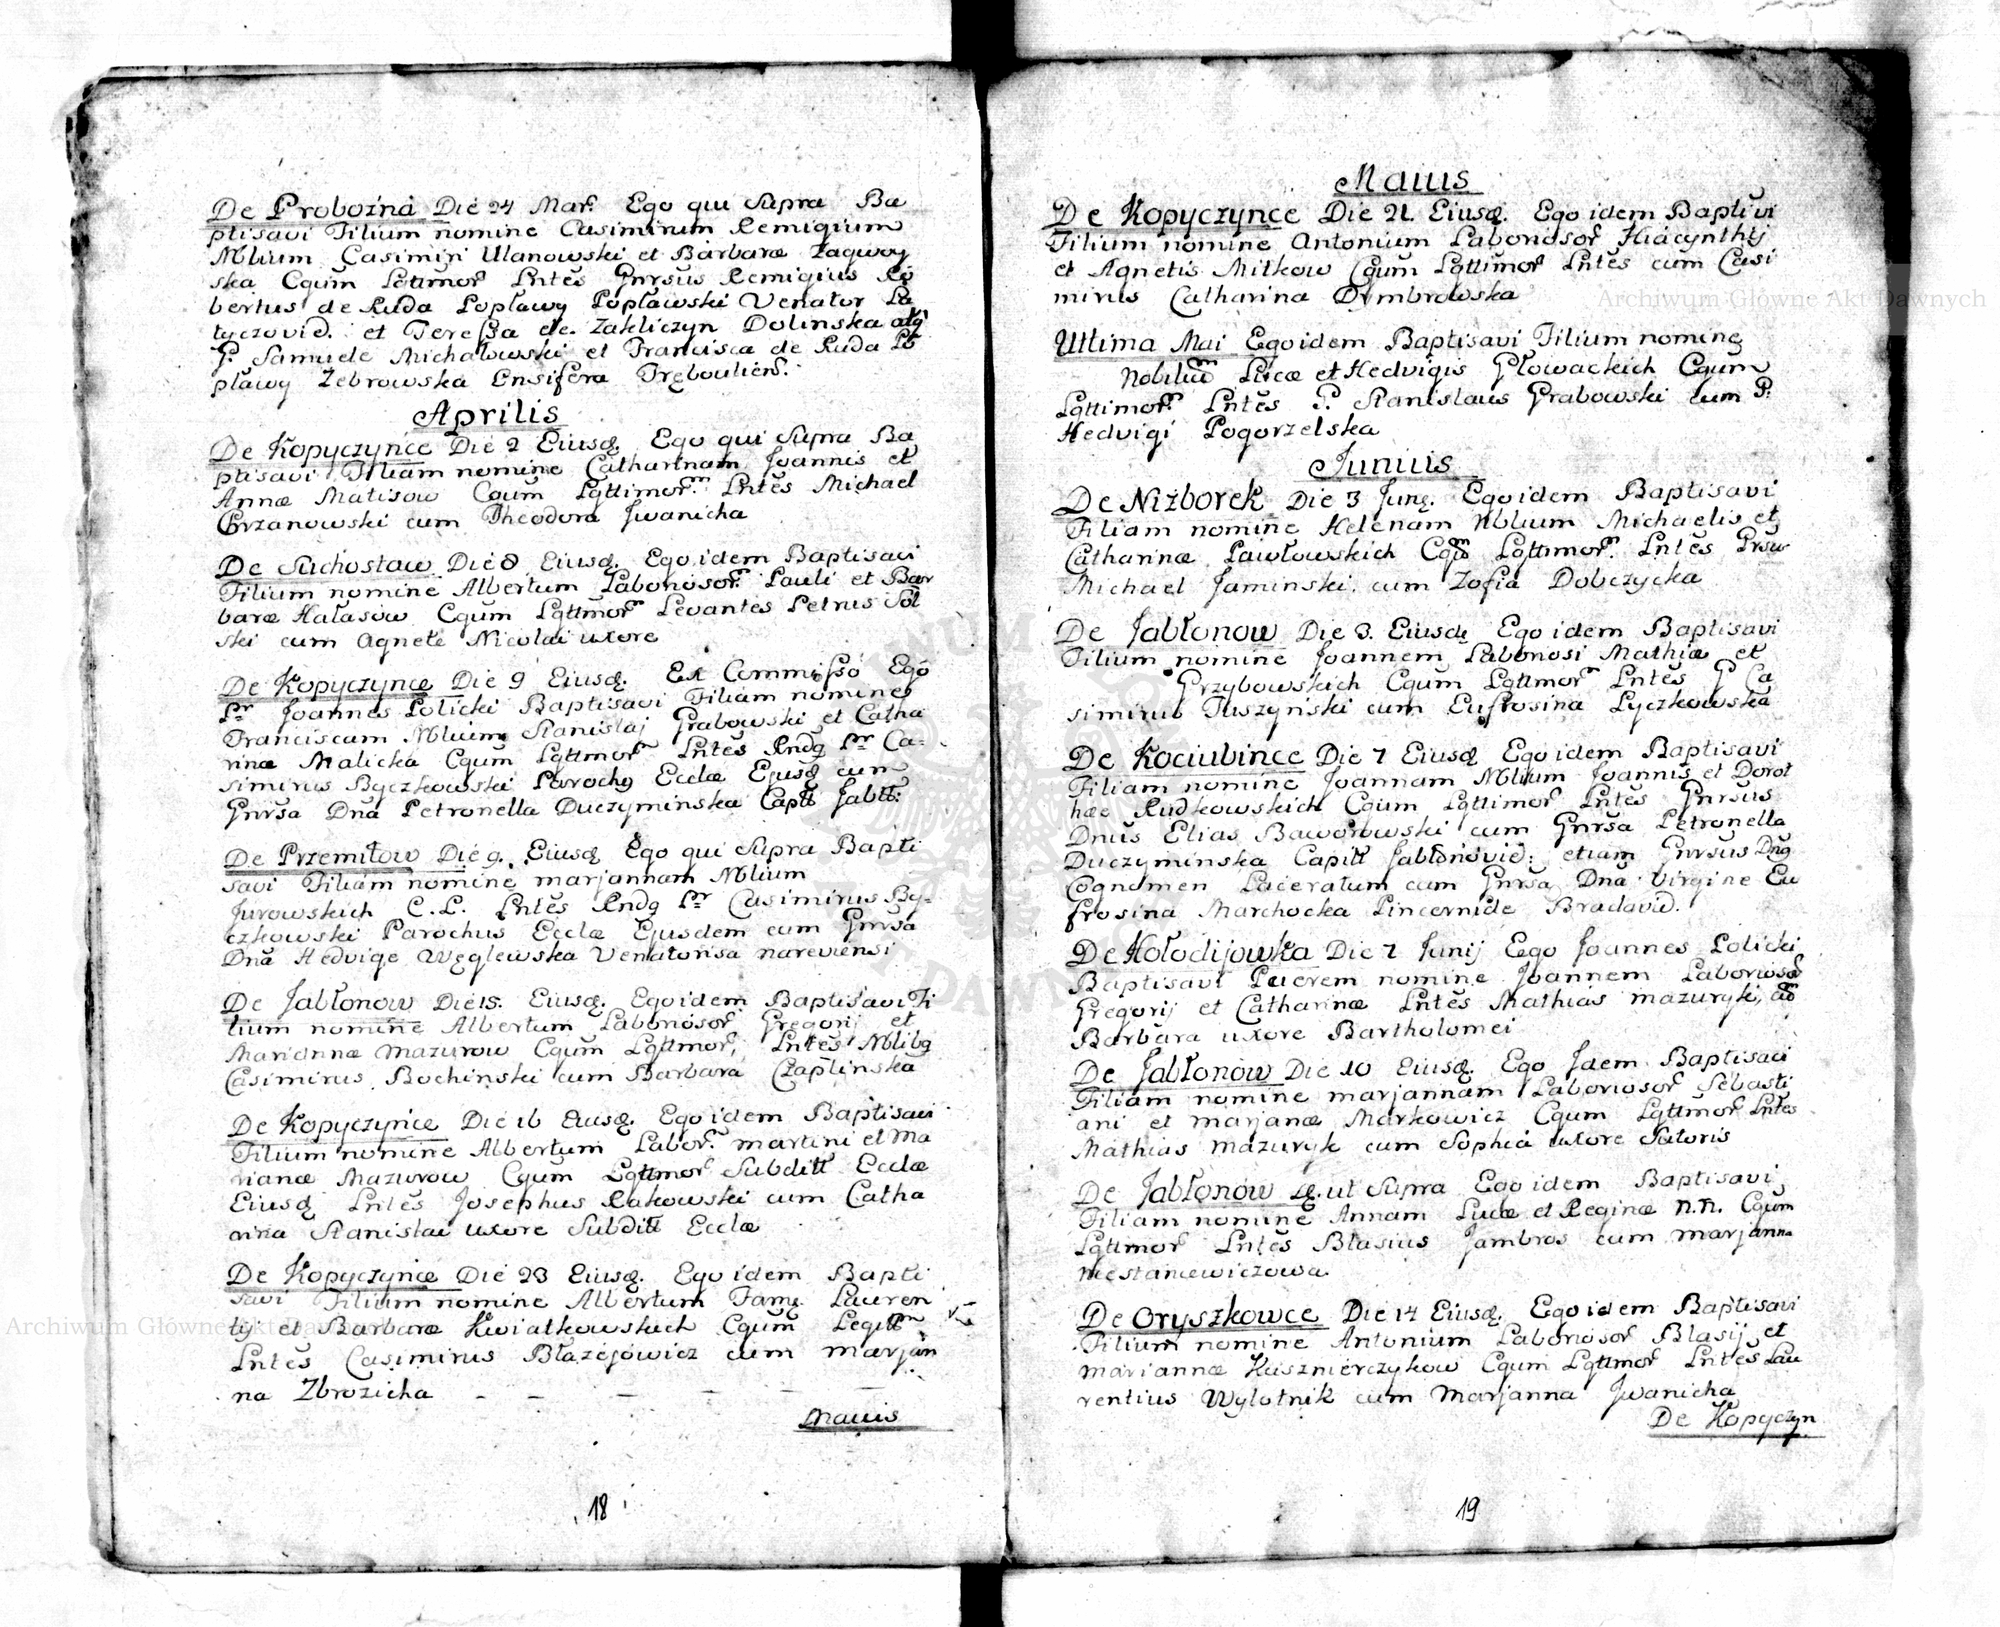 De Probożna Die 24 Mar. Ego qui Supra Ba
ptisavi Filium nomine Casimirum Remigium
Nblium Casimiri Ulanowski et Barbaræ Zagwoy
ska Cgum Lgttimor Lntės Gnrsus Remigius Ro
bertus de Ruda Popławy Popławski Venator La
tyczovid. et Teressa de Zakliczyn Dolinska
G. Samuele Michałowski et Francisca de Ruda Po
pławy Zebrowska Ensifera Trębouliens.
Aprilis
De Kopyczynce Die 2 Eiusq. Ego qui Supra Ba
ptisavi Filiam nomine Catharinam Joannis et
Annæ Matisow Cgum Lgttimor. Lntės Michael
Chrzanowski cum Theodora Jwanicha
De Suchostaw Die 8 Eiusq. Ego idem Baptisavi
Filium nomine Albertum Laboriosor. Pauli et Bar
baræ Hałasow Cgum Lgttmor Levantes Petrus Sol
ski cum Agnete Nicolai uxore
De Kopyczynce Die 9 Eiusq. Ex Commisso Ego
Pr Joannes Policki Baptisavi Filiam nomine
Franciscam Nblium Stanislaj Grabowski et Catha
rinæ Malicka Cgum Lgttmor Lntės Rndg Pr Ca-
simirus Byczkowski Parochg Ecclæ Ejusq cum
Gnrsa Dna Petronella Duczyminska Captt Jabtt:
De Przemiłow Die 9. Eiusq Ego qui Supra Bapti
savi Filiam nomine marjannam Nblium
Jurowskich C. L. Lntės Rndg Pr Casimirus By-
czkowski Parochus Ecclæ Ejusdem cum Gnrsa
Dna Hedvige Węglewska Venatorisa nareviensi
De Jabłonow Die 15. Eiusq. Ego idem Baptisavi Fi
lium nomine Albertum Laboriosor Gregorij et
Mariannæ Mazurow Cgum Lgttmor, Lntės Nblibg
Casimirus Bochinski cum Barbara Czaplinska
De Kopyczynce Die 16 Eiusq. Ego idem Baptisavi
Filium nomine Albertum Labor. martini et Ma
rianæ Mazurow Cgum Lgttmor Subditt Ecclæ
Eiusq Lntės Josephus Rakowski cum Catha
rina Stanislai uxore Subditt Ecclæ
De Kopyczynce Die 23 Eiusq. Ego idem Bapti
savi Filium nomine Albertum Fam. Lauren
tij et Barbaræ Kwiatkowskich Cgum Legitt
Lntės Casimirus Błazejowicz cum marjan
na Zbrozicha
Maius
18
Maius
De Kopyczynce Die 21. Eiusq. Ego idem Baptisavi
Filium nomine Antonium Laboriosor Hiacynthij
et Agnetis Mitkow Cgum Lgttimor Lntės cum Casi
mirus Catharina Dymbrowska
Ultima Mai Ego idem Baptisavi Filium nomine
Nobilium Lucæ et Hedvigis Głowackich Cgum
Lgttimor. Lntės G. Stanislaus Grabowski cum P.
Hedvigi Pogorzelska
Junius
De Niżborek Die 3 Junij. Ego idem Baptisavi
Filiam nomine Helenam Nblium Michaelis et
Catharinæ Pawłowskich Cgum Lgttimor. Lntės
Michael Jaminski cum Zofia Dobczycka
De Jabłonow Die 3. Eiusq Ego idem Baptisavi
Filium nomine Joannem Laboriosi Mathiæ et
Grzybowskich Cgum Lgttmor Lntės G Ca
simirus Tuszyński cum Eufrosina Lyczkowska
De Kociubince Die 7 Eiusq Ego idem Baptisavi
Filiam nomine Joannam Nblium Joannis et Dorot
heæ Rudkowskich Cgum Lgttimor Lntės Gnrsus
Dnus Elias Baworowski cum Gnrsa Petronella
Duczyminska Capitt Jabłonovid: etiam Gnrsus Dng
Cognomen Laceratum cum Gnrsa Dna Virgine Eu
frosina Marchocka Pincernide Braclavid.
De Hołodijowka Die 7 Junij Ego Joannes Policki
Baptisavi Puerem nomine Joannem Laboriosor
Gregorij et Catharinæ Lntės Mathias mazuryk, cum
Barbara uxore Bartholomei
De Jabłonow Die 10 Eiusq. Ego Jdem Baptisavi
Filiam nomine marjannam Laboriosor Sebasti
ani et marjanæ Markowicz Cgum Lgttmor Lntės
Mathias mazuryk cum Sophia uxore Sutoris
De Jabłonow ut Supra Ego idem Baptisavi
Filiam nomine Annam Lucæ et Reginæ N.N. Cgum
Lgttmor Lntės Błasius Jambros cum Marjanna
Niestancewiczowa
De Oryszkowce Die 14 Eiusq. Ego idem Baptisavi
Filium nomine Antonium Laboriosor Blasij et
Mariannæ Kusznierczykow Cgum Lgttmor Lntės Lau
rentius Wylotnik cum Marjanna Jwanicha
De Kopyczyn
19
Archiwum Główne Akt Dawnych
Archiwum Główne Akt Dawnych